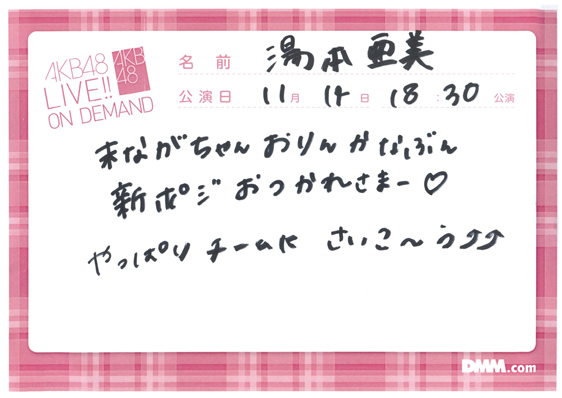 AKB48
LIVE!!
ON DEMAND
AKB
48
名前 湯本亜美
公演日 11月 14日 18:30公演
まながちゃんおりんかなぶん
新ポジおつかれさまー♡
やっぱりチームK さいこ〜う⤴⤴
DMM.com